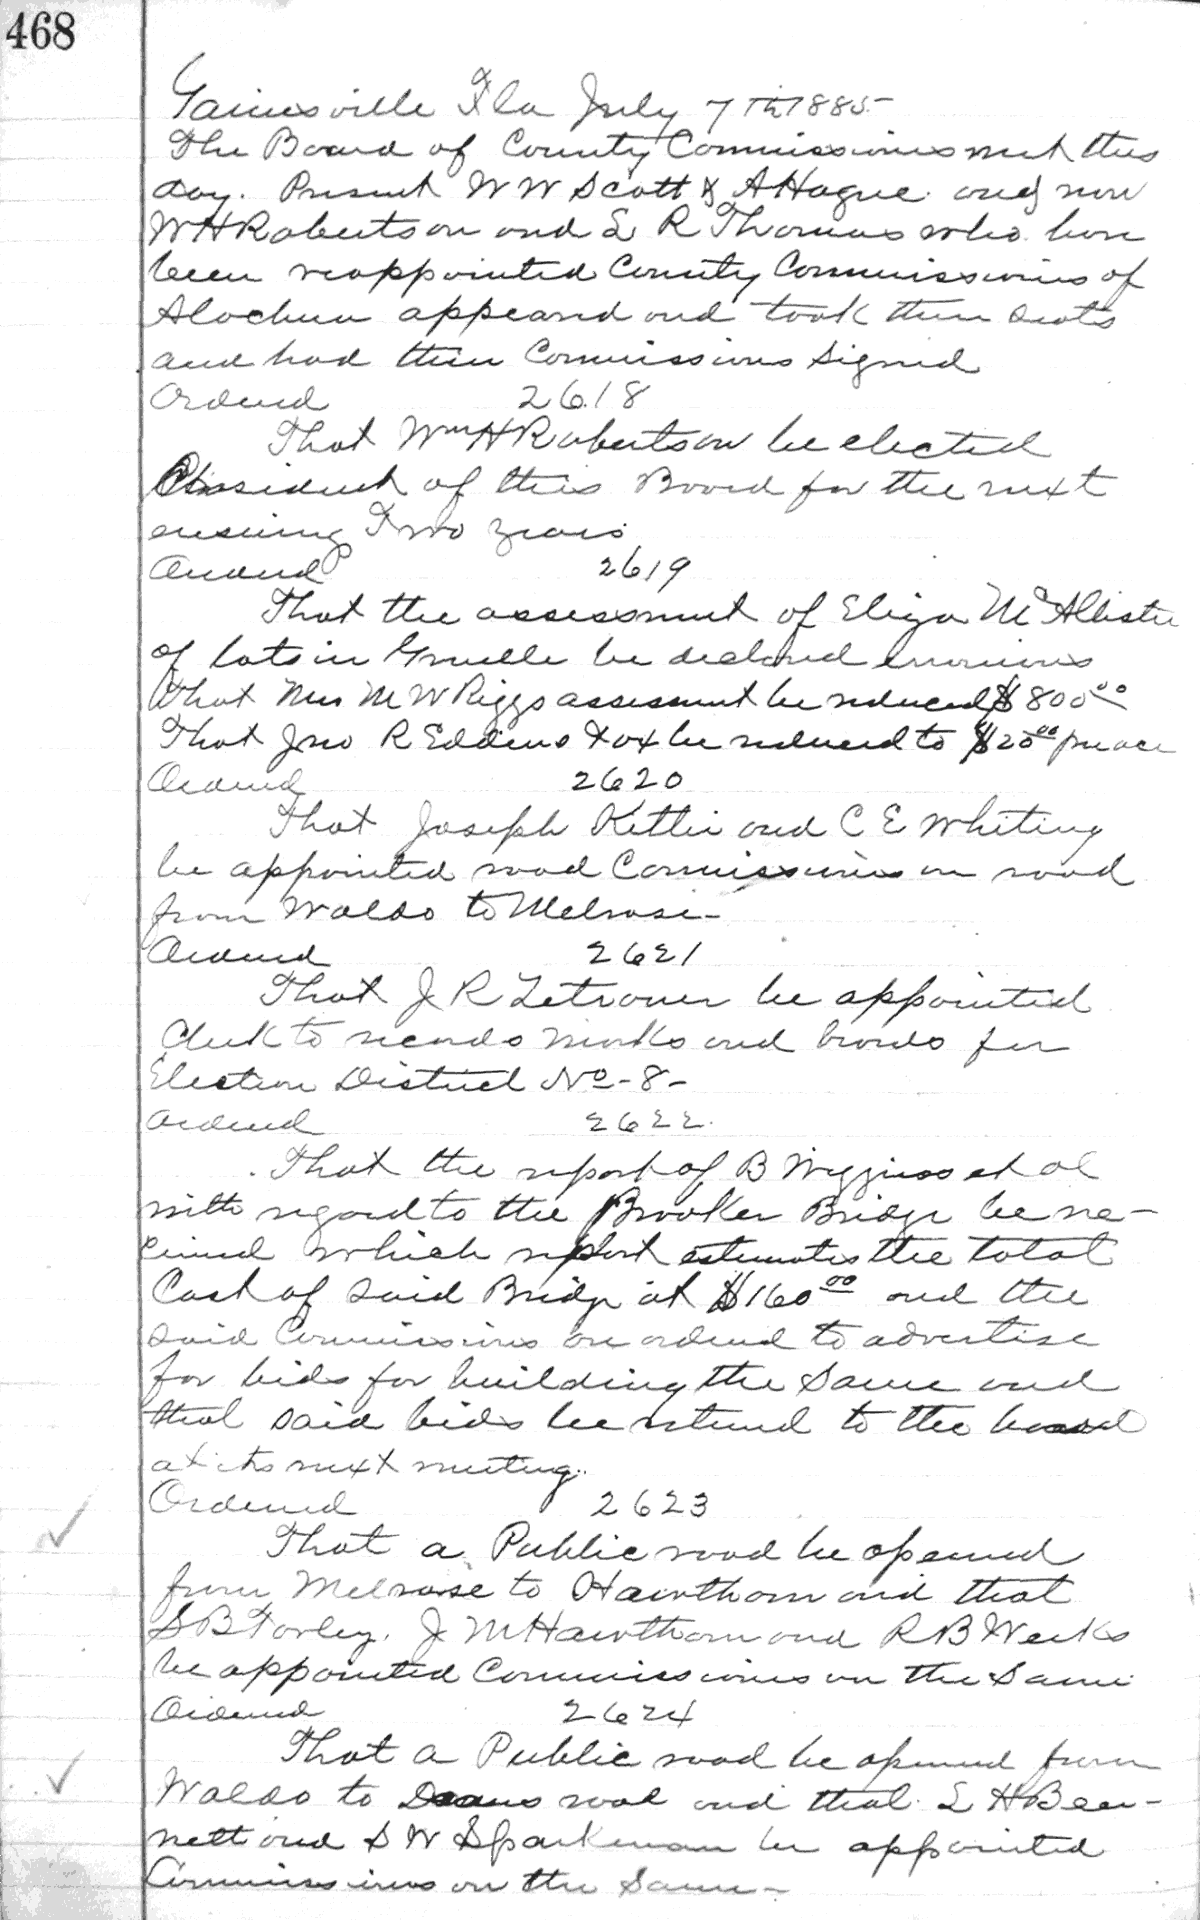 468
Gainesville Fla July 7th 1885
The Board of County Commissioners met this
day. Present W W Scott & A Hague and now
W H Robertson and L R Thomas who have
been reappointed County Commissioners of
Alachua appeared and took their seats
and had their Commissions signed
Ordered 2618
That Wm H Robertson be elected
President of this Board for the next
ensuing Two years
Ordered 2619
That the assessment of Eliza McAllister
of lots in Gville be declared erroneous
that Mrs M W Riggs assessment be reduced $800.00
That Jno R Eddins tax be reduced to $20.00 per acre
Ordered 2620
That Joseph and C E Whiting
be appointed road Commissioners on road
from Waldo to Melrose -
Ordered 2621
That J R Zetrouer be appointed
Clerk to records marks and brands for
Election District No - 8 -
Ordered 2622
That the report of B Wiggins et al
with regard to the Brooker Bridge be re-
ceived which report estimates the total
Cost of said Bridge at $160.00 and the
said Commissioners are ordered to advertise
for bids for building the same and
that said bids be returned to the board
at its next meeting.
Ordered 2623
That a Public road be opened
from Melrose to Hawthorn and that
S B Farley, J M Hawthorn and R B Weeks
be appointed Commissioners on the Same
Ordered 2624
That a Public road be opened from
Waldo to road and that L H Ben-
nett and S W Sparkman be appointed
Commissioners on the Same -